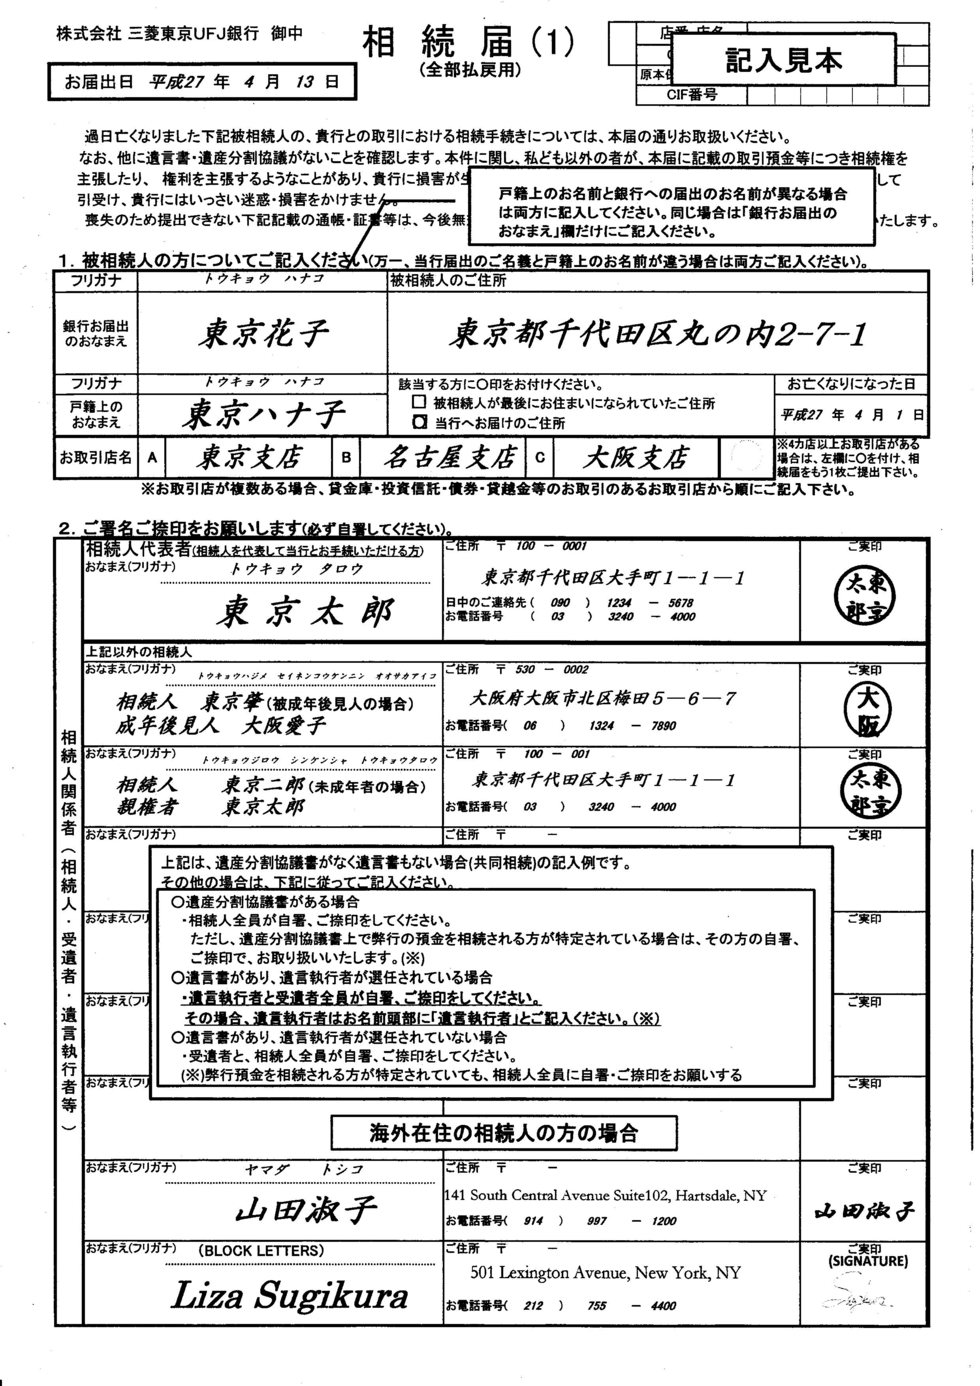 株式会社 三菱東京UFJ銀行 御中
相 続 届(1)
(全部払戻用)
お届出日 平成27 年 4 月 13 日
記入見本
CIF番号
過日亡くなりました下記被相続人の、貴行との取引における相続手続きについては、本届の通りお取扱いください。
なお、他に遺言書・遺産分割協議がないことを確認します。本件に関し、私ども以外の者が、本届に記載の取引預金等につき相続権を
主張したり、権利を主張するようなことがあり、貴行に損害が
して
引受け、貴行にはいっさい迷惑・損害をかけません。
喪失のため提出できない下記記載の通帳・証書等は、今後無
いたします。
戸籍上のお名前と銀行への届出のお名前が異なる場合
は両方に記入してください。同じ場合は「銀行お届出の
おなまえ」欄だけにご記入ください。
1. 被相続人の方についてご記入ください(万一、当行届出のご名義と戸籍上のお名前が違う場合は両方ご記入ください)。
フリガナ トウキョウ ハナコ 被相続人のご住所
銀行お届出のおなまえ 東京花子 東京都千代田区丸の内2-7-1
フリガナ トウキョウ ハナコ 該当する方に○印をお付けください。 お亡くなりになった日
戸籍上のおなまえ 東京ハナ子 □ 被相続人が最後にお住まいになられていたご住所
当行へお届けのご住所 平成27 年 4 月 1 日
お取引店名 A 東京支店 B 名古屋支店 C 大阪支店
※4カ店以上お取引店がある
場合は、左欄に○を付け、相
続届をもう1枚ご提出下さい。
※お取引店が複数ある場合、貸金庫・投資信託・債券・貸越金等のお取引のあるお取引店から順にご記入下さい。
2. ご署名ご捺印をお願いします(必ず自署してください)。
相続人関係者(相続人・受遺者・遺言執行者等)
相続人代表者(相続人を代表して当行とお手続いただける方) ご住所 〒 100 - 0001 ご実印
おなまえ(フリガナ) トウキョウ タロウ
東京太郎 東京都千代田区大手町1-1-1
日中のご連絡先( 090 ) 1234 - 5678
お電話番号 ( 03 ) 3240 - 4000
東京太郎
上記以外の相続人
おなまえ(フリガナ) トウキョウハジメ セイネンコウケンニン オオサカアイコ ご住所 〒 530 - 0002 ご実印
相続人 東京肇(被成年後見人の場合) 大阪府大阪市北区梅田5-6-7
成年後見人 大阪愛子 お電話番号( 06 ) 1324 - 7890
大阪
おなまえ(フリガナ) トウキョウジロウ シンケンシャ トウキョウタロウ ご住所 〒 100 - 001 ご実印
相続人 東京二郎(未成年者の場合) 東京都千代田区大手町1-1-1
親権者 東京太郎 お電話番号( 03 ) 3240 - 4000
東京太郎
おなまえ(フリガナ) ご住所 〒 - ご実印
上記は、遺産分割協議書がなく遺言書もない場合(共同相続)の記入例です。
その他の場合は、下記に従ってご記入ください。
○遺産分割協議書がある場合
・相続人全員が自署、ご捺印をしてください。
ただし、遺産分割協議書上で弊行の預金を相続される方が特定されている場合は、その方の自署、
ご捺印で、お取り扱いいたします。(※)
○遺言書があり、遺言執行者が選任されている場合
・遺言執行者と受遺者全員が自署、ご捺印をしてください。
その場合、遺言執行者はお名前頭部に「遺言執行者」とご記入ください。(※)
○遺言書があり、遺言執行者が選任されていない場合
・受遺者と、相続人全員が自署、ご捺印をしてください。
(※)弊行預金を相続される方が特定されていても、相続人全員に自署・ご捺印をお願いする
おなまえ(フリ ご実印
おなまえ(フリ ご実印
おなまえ(フリ ご実印
海外在住の相続人の方の場合
おなまえ(フリガナ) ヤマダ トシコ ご住所 〒 - ご実印
山田淑子 141 South Central Avenue Suite102, Hartsdale, NY
お電話番号( 914 ) 997 - 1200
山田淑子
おなまえ(フリガナ) (BLOCK LETTERS) ご住所 〒 - ご実印
(SIGNATURE)
Liza Sugikura 501 Lexington Avenue, New York, NY
お電話番号( 212 ) 755 - 4400